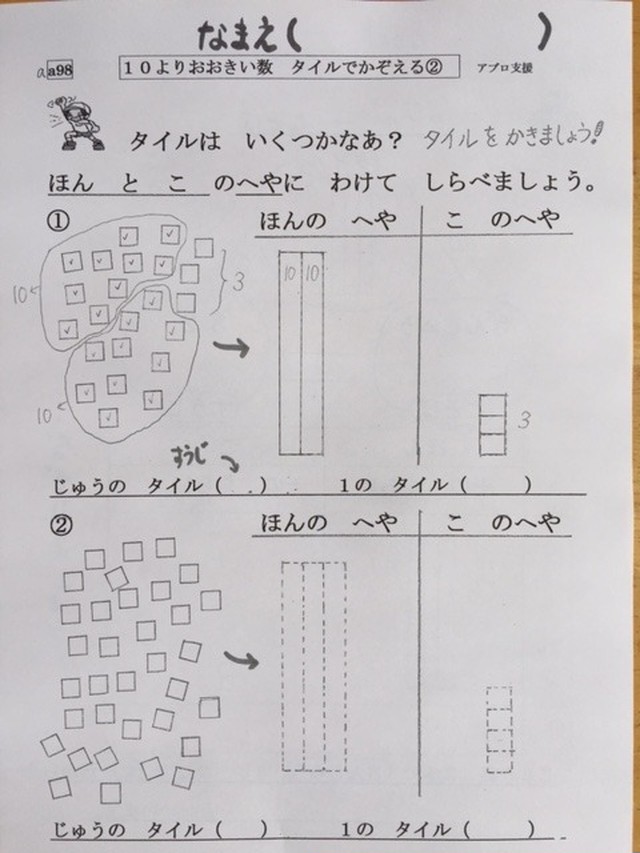 なまえ(　　　　　)
a a98　１０よりおおきい数　タイルでかぞえる②　アプロ支援
タイルは　いくつかなあ？　タイルを かきましょう!
ほん　と　こ　のへやに　わけて　しらべましょう。
①　ほんの　へや　こ　のへや
10　10　10　3
10　3
すうじ
じゅうの　タイル（　　）　１の　タイル（　　）
②　ほんの　へや　こ　のへや
じゅうの　タイル（　　）　１の　タイル（　　）